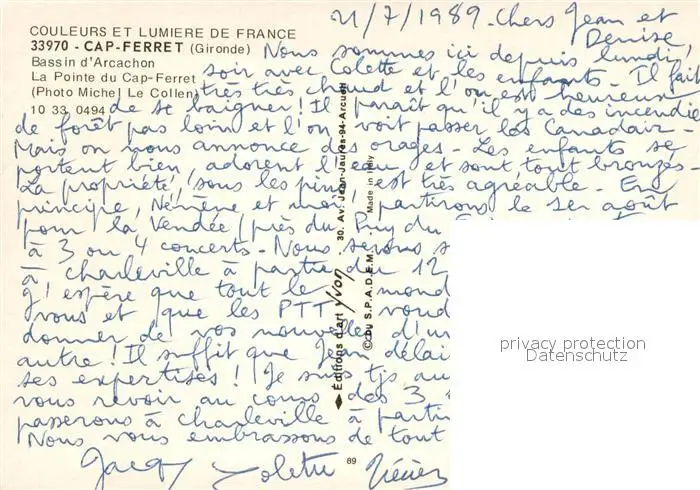 COULEURS ET LUMIERE DE FRANCE
33970 - CAP-FERRET (Gironde)
Bassin d'Arcachon
La Pointe du Cap-Ferret
(Photo Michel Le Collen)
10 33 0494
21/7/1989 - Chers Jean et
Denise,
Nous sommes ici depuis lundi
soir avec Colette et les enfants - Il fait
très très chaud et l'on est heureux
de se baigner! Il paraît qu'il y a des incendies
de forêt pas loin et l'on voit passer les Canadair -
Mais on nous annonce des orages - Les enfants se
portent bien, adorent l'eau et sont tout bronzés -
La propriété, sous les pins, est très agréable - En
principe, et moi, partirons le 1er août
pour la Vendée, près du Puy du
à 3 ou 4 concerts - Nous serons
à Charleville à partir du 12
J'espère que tout le mond
vous et que les PTT voud
donner de vos nouvelles d'un
autre! Il suffit que Jean délai
ses expertises! Je suis tjs au
vous revoir au cours des 3
passerons à Charleville à parti
Nous vous embrassons de tout
Jacqy Colette
Editions d'art yvon 30, Av. Jean-Jaurès-94-Arcueil
© by S.P.A.D.E.M. Made in Italy
89
privacy protection
Datenschutz